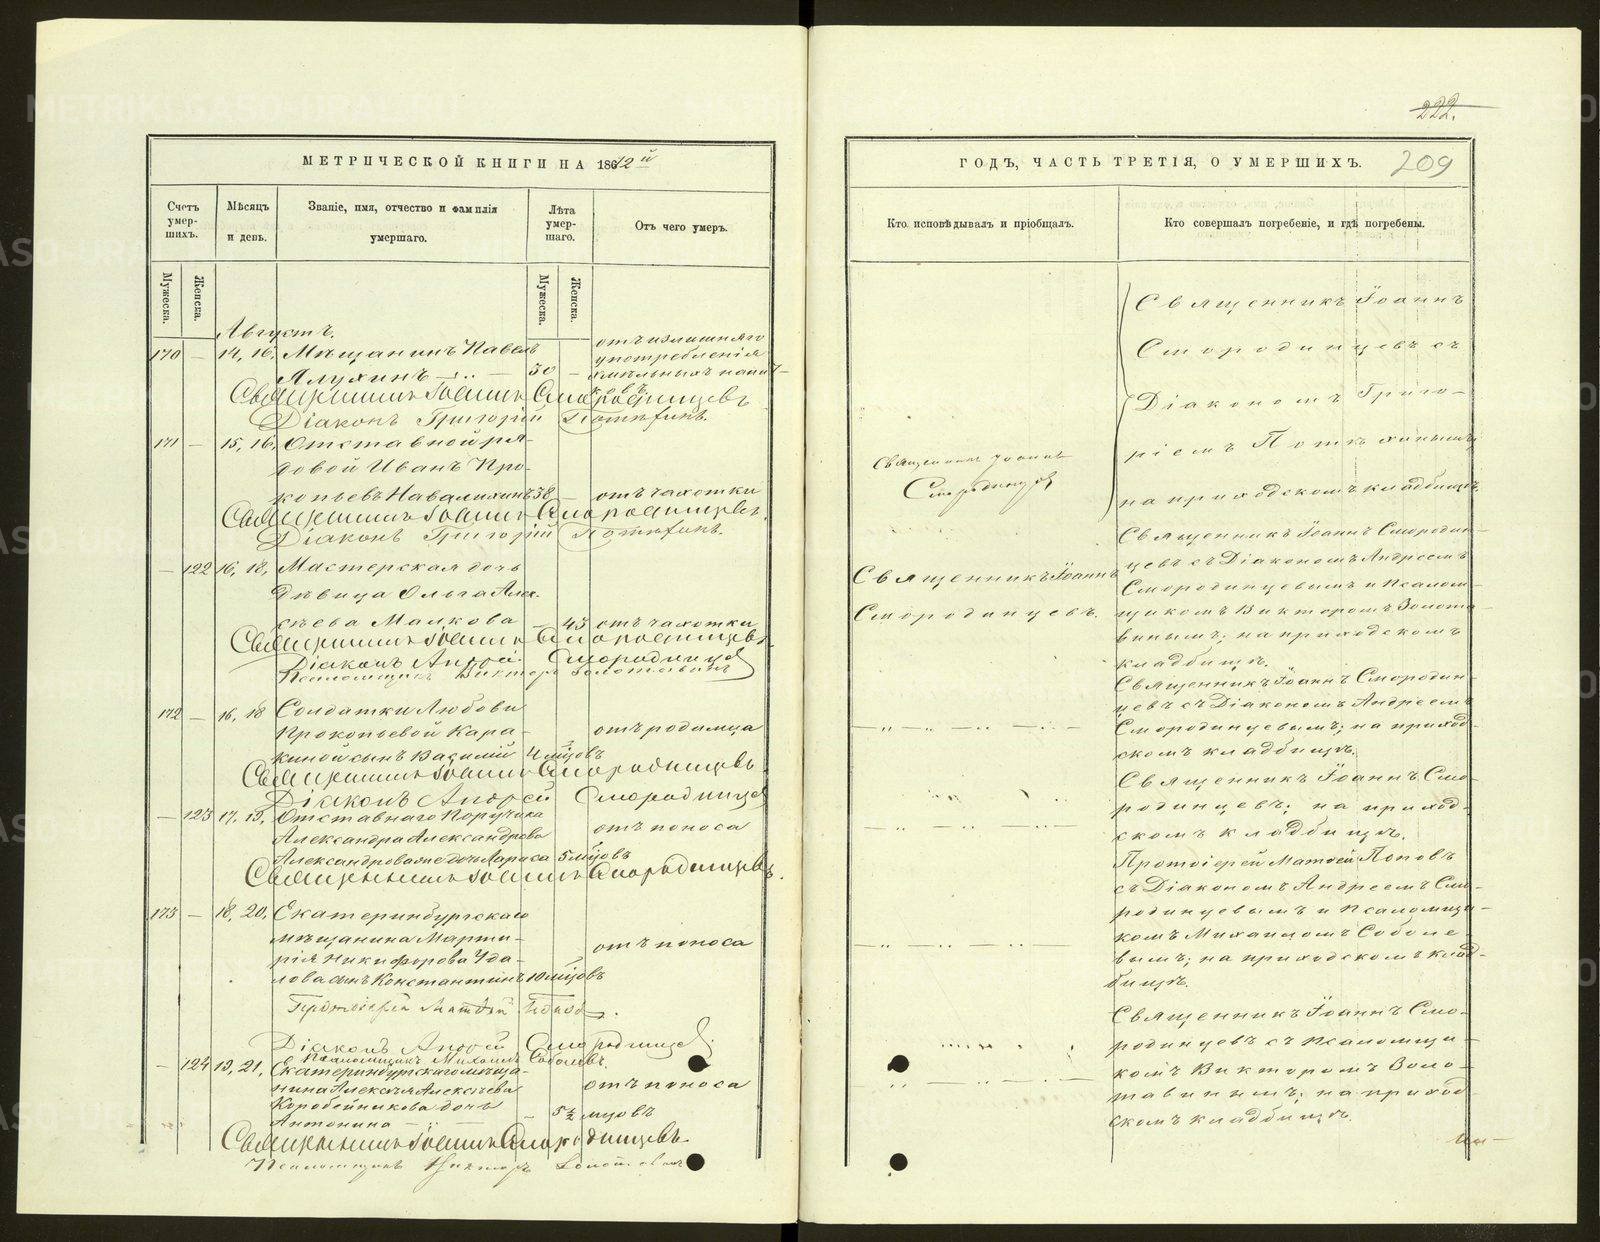 222.
МЕТРИЧЕСКОЙ КНИГИ НА 1862й
ГОДЪ, ЧАСТЬ ТРЕТІЯ, О УМЕРШИХЪ.
209
Счетъ умер-шихъ.
Мѣсяцъ и день.
Званіе, имя, отчество и фамилія умершаго.
Лѣта умер-шаго.
Отъ чего умеръ.
Мужеска.
Женска.
Мужеска.
Женска.
Августъ.
170 — 14, 16, Мѣщанинъ Павелъ
Ялухинъ — 50 —
отъ излишняго
употребленія
хмѣльныхъ напит-
ковъ
Священникъ Іоаннъ Смородинцевъ
Діаконъ Григорій Потѣхинъ.
171 — 15, 16, Отставной ря-
довой Иванъ Про-
копьевъ Навалихинъ 58 — отъ чахотки
Священникъ Іоаннъ Смородинцевъ.
Діаконъ Григорій Потѣхинъ.
— 122 16, 18, Мастерская дочь
дѣвица Ольга Алек-
сѣева Малкова — 43 отъ чахотки
Священникъ Іоаннъ Смородинцевъ
Діаконъ Андрей Смородинцевъ
Псаломщикъ Викторъ Золотавинъ
172 — 16, 18 Солдатки Любови
Прокопьевой Кара-
киной сынъ Василій 4 мѣцовъ
отъ родимца
Священникъ Іоаннъ Смородинцевъ
Діаконъ Андрей Смородинцевъ
— 123 17, 19, Отставнаго Поручика
Александра Александрова
Александрова же дочь Лариса 5 мѣцовъ
отъ поноса
Священникъ Іоаннъ Смородинцевъ.
173 — 18, 20, Екатеринбургскаго
мѣщанина Марти-
рія Никифорова Уда-
лова сынъ Константинъ 10 мѣцовъ
отъ поноса
Протоіерей Матѳей Поповъ.
Діаконъ Андрей Смородинцевъ.
Псаломщикъ Михаилъ Соболевъ.
— 124 19, 21, Екатеринбургскаго мѣща-
нина Алексѣя Алексѣева
Коробейникова дочь
Антонина — 5½ мѣцовъ
отъ поноса
Священникъ Іоаннъ Смородинцевъ.
Псаломщикъ Викторъ Золотавинъ
Кто исповѣдывалъ и пріобщалъ.
Кто совершалъ погребеніе, и гдѣ погребены.
Священникъ Іоаннъ
Смородинцевъ съ
Діакономъ Григо-
ріемъ Потѣхинымъ;
на приходскомъ кладбищѣ.
Священникъ Іоаннъ
Смородинцевъ
Священникъ Іоаннъ
Смородинцевъ.
Священникъ Іоаннъ Смородин-
цевъ съ Діакономъ Андреемъ
Смородинцевымъ и Псалом-
щикомъ Викторомъ Золота-
винымъ; на приходскомъ
кладбищѣ.
Священникъ Іоаннъ Смородин-
цевъ съ Діакономъ Андреемъ
Смородинцевымъ; на приход-
скомъ кладбищѣ.
Священникъ Іоаннъ Смо-
родинцевъ; на приход-
скомъ кладбищѣ.
Протоіерей Матѳей Поповъ
съ Діакономъ Андреемъ Смо-
родинцевымъ и Псаломщи-
комъ Михаиломъ Соболе-
вымъ; на приходскомъ клад-
бищѣ.
Священникъ Іоаннъ Смо-
родинцевъ съ Псаломщи-
комъ Викторомъ Золо-
тавинымъ; на приход-
скомъ кладбищѣ.
METRIKI.GASO-URAL.RU